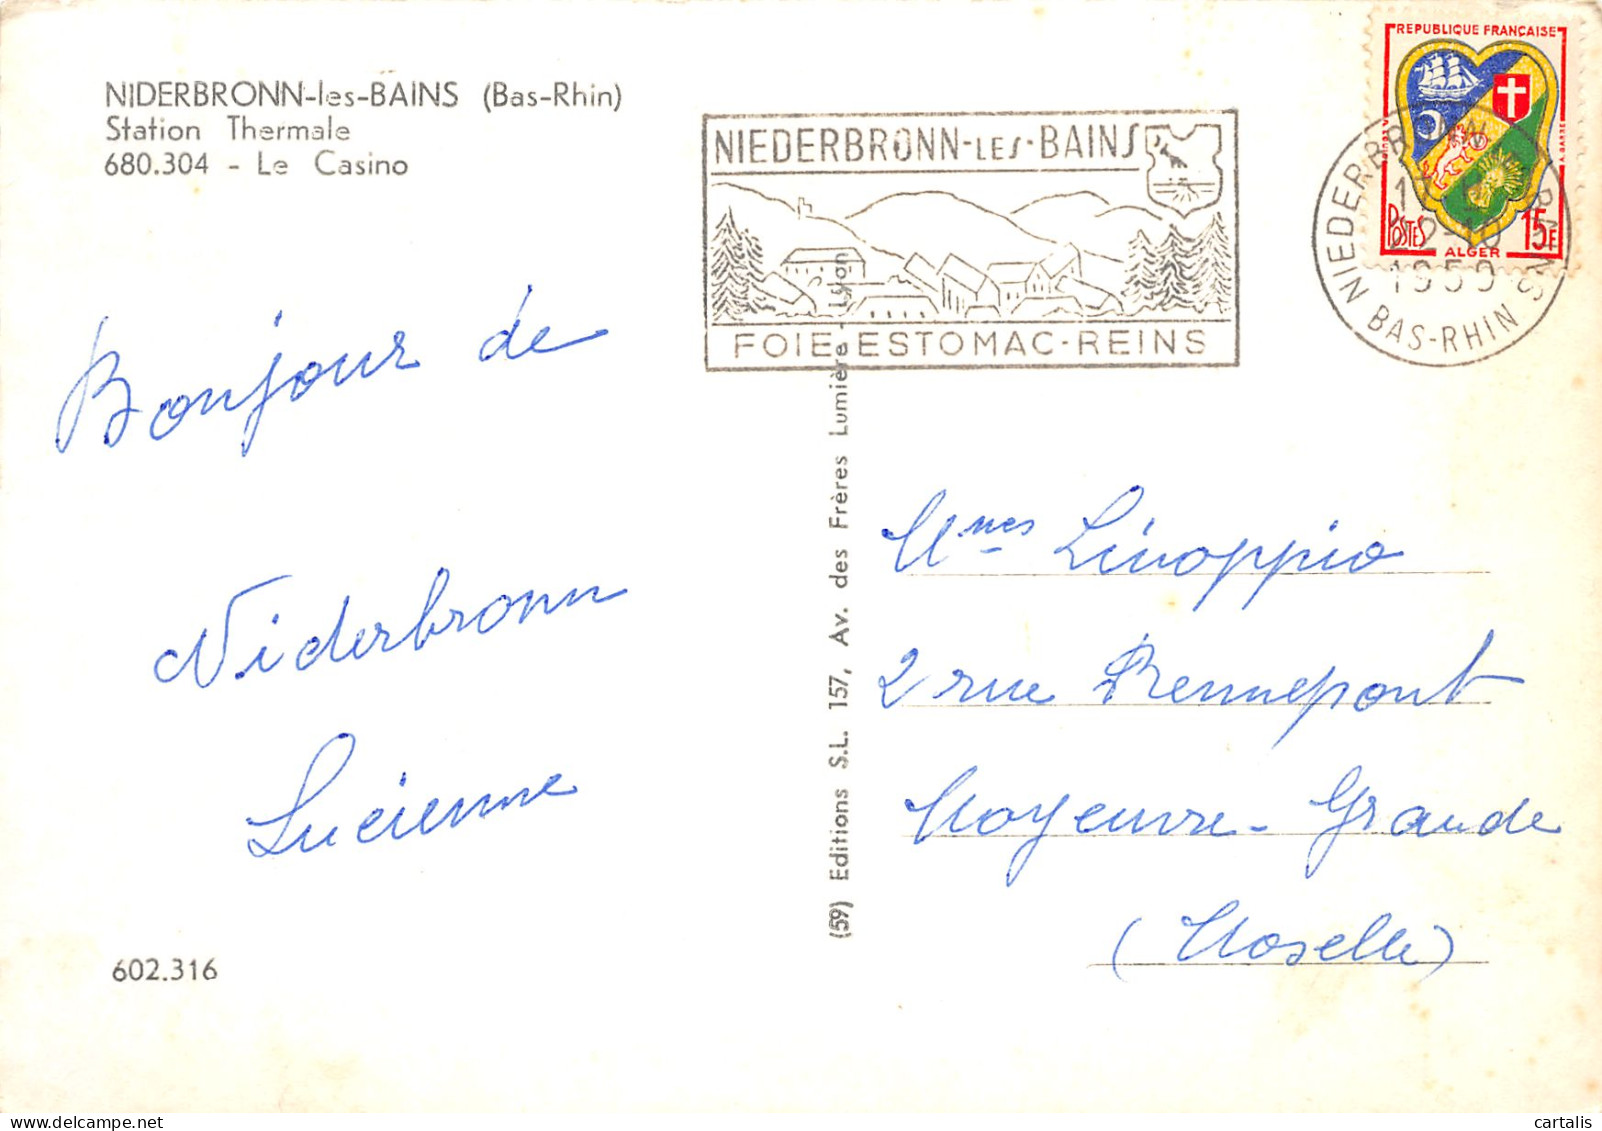 NIDERBRONN-les-BAINS (Bas-Rhin)
Station Thermale
680.304 - Le Casino
NIEDERBRONN-LES-BAINS
FOIE-ESTOMAC-REINS
REPUBLIQUE FRANÇAISE
POSTES
15F
ALGER
NIEDERBRONN BAINS
22-10
1959
BAS-RHIN
Bonjour de
Niderbronn
Lucienne
602.316
(59) Editions S.L. 157, Av. des Frères Lumière - Lyon
Mmes Linoppio
2 rue Rennepont
Moyeuvre-Grande
(Moselle)
cartalis